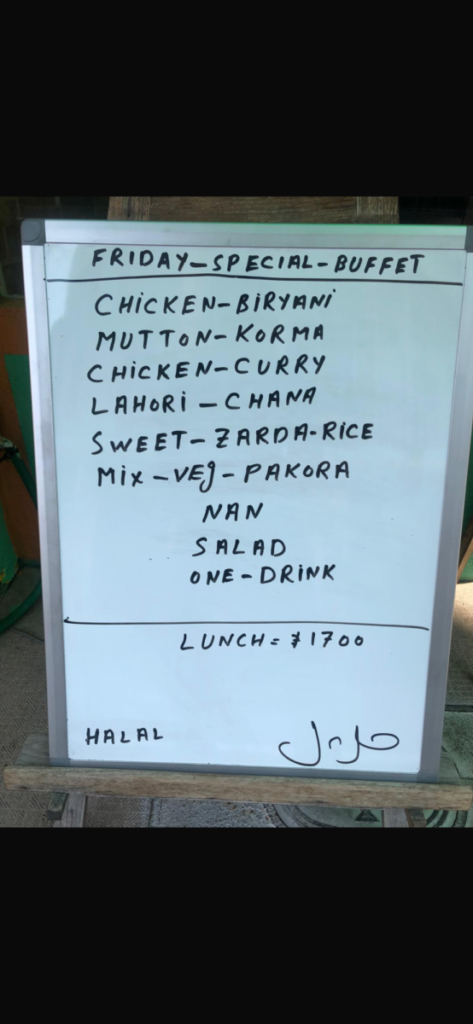 FRIDAY-SPECIAL-BUFFET
CHiCKEN-BiRYANi
MUTTON-KORMA
CHiCKEN-CURRY
LAHORi-CHANA
SWEET-ZARDA-RICE
Mix-VEg-PAKORA
NAN
SALAD
ONE-DRiNK
LUNCH= ¥1700
HALAL حلال